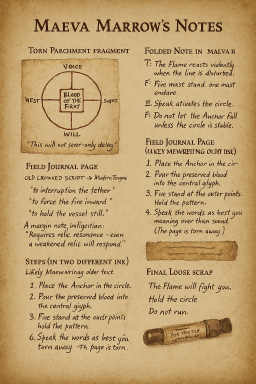 MAEVA MARROW'S NOTES
TORN PARCHMENT FRAGMENT
VOICE
WEST
BLOOD
OF THE
FIRST
WILL
"This will not sever-only delay"
FIELD JOURNAL PAGE
OLD CROWSED SCRIPT → Modern Tongue
"to interruption the tether"
"to force the fire inward"
"to hold the vessel still."
A margin note, in
"Requires relic resonance - even
a weakened relic will respond."
STEPS (IN TWO DIFFERENT INK)
Likely older text
1. Place the Anchor in the circle.
2. Pour the preserved blood
into the central glyph.
3. Five stand at the outer points
hold the pattern.
6. Speak the words as best you
torn away - Th page is torn.
FOLDED NOTE IN MAEVA R
T: The Flame reacts violently
when the line is disturbed.
F: Five must stand. one must
endure
E. Speak ativates the circle.
F: Do not let the Anchor fall
unless the circle is stable.
FIELD JOURNAL PAGE
1. Place the Anchor in the cir-
2. Pour the preserved blood
into the central glyph.
3. Five stand at the outer points.
Hold the pattern.
4. Speak the words as best you
meaning over than sound
(The page is torn away.)
FINAL LOOSE SCRAP
The Flame will fight you.
Hold the circle
Do not run.